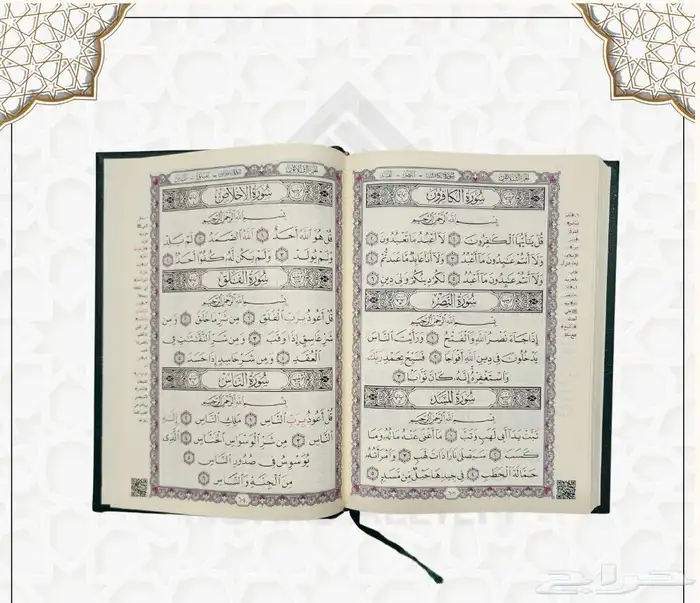 سُورَةُ الكَافِرُونَ
بِسْمِ اللَّهِ الرَّحْمَٰنِ الرَّحِيمِ
قُلْ يَٰٓأَيُّهَا ٱلْكَٰفِرُونَ ١ لَآ أَعْبُدُ مَا تَعْبُدُونَ ٢
وَلَآ أَنتُمْ عَٰبِدُونَ مَآ أَعْبُدُ ٣ وَلَآ أَنَا۠ عَابِدٌ مَّا عَبَدتُّمْ ٤
وَلَآ أَنتُمْ عَٰبِدُونَ مَآ أَعْبُدُ ٥ لَكُمْ دِينُكُمْ وَلِيَ دِينِ ٦
سُورَةُ النَّصْرِ
بِسْمِ اللَّهِ الرَّحْمَٰنِ الرَّحِيمِ
إِذَا جَآءَ نَصْرُ ٱللَّهِ وَٱلْفَتْحُ ١ وَرَأَيْتَ ٱلنَّاسَ
يَدْخُلُونَ فِى دِينِ ٱللَّهِ أَفْوَاجًا ٢ فَسَبِّحْ بِحَمْدِ رَبِّكَ
وَٱسْتَغْفِرْهُ إِنَّهُۥ كَانَ تَوَّابًۢا ٣
سُورَةُ المَسَد
بِسْمِ اللَّهِ الرَّحْمَٰنِ الرَّحِيمِ
تَبَّتْ يَدَآ أَبِى لَهَبٍ وَتَبَّ ١ مَآ أَغْنَىٰ عَنْهُ مَالُهُۥ وَمَا
كَسَبَ ٢ سَيَصْلَىٰ نَارًا ذَاتَ لَهَبٍ ٣ وَٱمْرَأَتُهُۥ
حَمَّالَةَ ٱلْحَطَبِ ٤ فِى جِيدِهَا حَبْلٌ مِّن مَّسَدٍۭ ٥
سُورَةُ الإِخْلَاصِ
بِسْمِ اللَّهِ الرَّحْمَٰنِ الرَّحِيمِ
قُلْ هُوَ ٱللَّهُ أَحَدٌ ١ ٱللَّهُ ٱلصَّمَدُ ٢ لَمْ يَلِدْ
وَلَمْ يُولَدْ ٣ وَلَمْ يَكُن لَّهُۥ كُفُوًا أَحَدٌۢ ٤
سُورَةُ الفَلَقِ
بِسْمِ اللَّهِ الرَّحْمَٰنِ الرَّحِيمِ
قُلْ أَعُوذُ بِرَبِّ ٱلْفَلَقِ ١ مِن شَرِّ مَا خَلَقَ ٢ وَمِن
شَرِّ غَاسِقٍ إِذَا وَقَبَ ٣ وَمِن شَرِّ ٱلنَّفَّٰثَٰتِ فِى
ٱلْعُقَدِ ٤ وَمِن شَرِّ حَاسِدٍ إِذَا حَسَدَ ٥
سُورَةُ النَّاسِ
بِسْمِ اللَّهِ الرَّحْمَٰنِ الرَّحِيمِ
قُلْ أَعُوذُ بِرَبِّ ٱلنَّاسِ ١ مَلِكِ ٱلنَّاسِ ٢ إِلَٰهِ
ٱلنَّاسِ ٣ مِن شَرِّ ٱلْوَسْوَاسِ ٱلْخَنَّاسِ ٤ ٱلَّذِى
يُوَسْوِسُ فِى صُدُورِ ٱلنَّاسِ ٥
مِنَ ٱلْجِنَّةِ وَٱلنَّاسِ ٦
٦٠٤
حراج